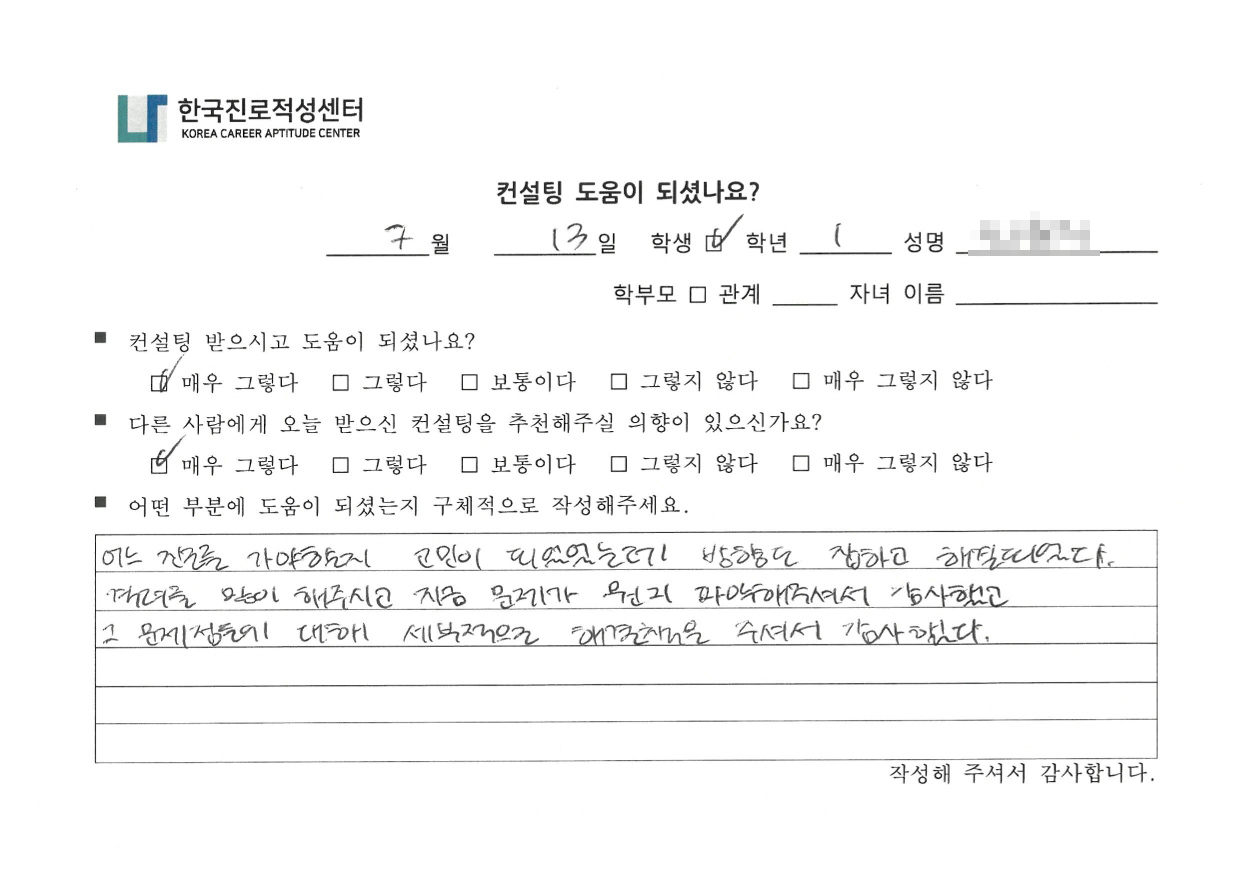 한국진로적성센터
KOREA CAREER APTITUDE CENTER
컨설팅 도움이 되셨나요?
7월 13일 학생 학년 1 성명
학부모 □ 관계 자녀 이름
■ 컨설팅 받으시고 도움이 되셨나요?
매우 그렇다 □ 그렇다 □ 보통이다 □ 그렇지 않다 □ 매우 그렇지 않다
■ 다른 사람에게 오늘 받으신 컨설팅을 추천해주실 의향이 있으신가요?
매우 그렇다 □ 그렇다 □ 보통이다 □ 그렇지 않다 □ 매우 그렇지 않다
■ 어떤 부분에 도움이 되셨는지 구체적으로 작성해주세요.
어느 진로를 가야할지 고민이 되었었는데 방향도 잡히고 해결되었다.
격려를 많이 해주시고 지금 문제가 뭔지 파악해주셔서 감사했고
그 문제점들에 대해 세부적으로 해결책을 주셔서 감사합니다.
작성해 주셔서 감사합니다.